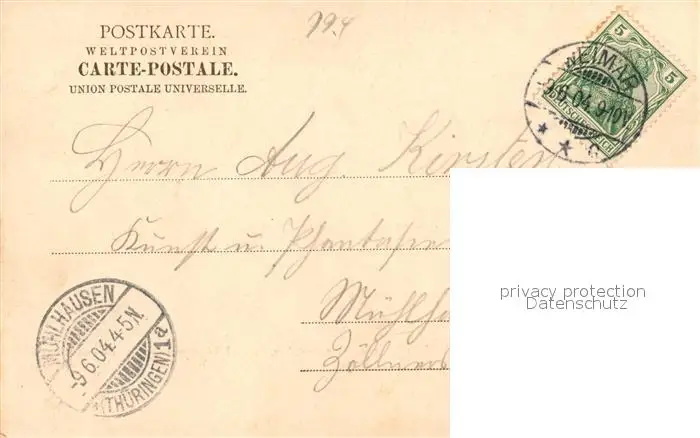 19.4
POSTKARTE.
WELTPOSTVEREIN
CARTE-POSTALE.
UNION POSTALE UNIVERSELLE.
5 5
DEUTSCHES REICH
WEIMAR
-9.6.04.9-10V.
* * c
Herrn Aug. Kirsten
Kunst u. Phantasie
Mühlh
MÜHLHAUSEN
-9.6.04.4-5N.
(THÜRINGEN) 1a
privacy protection
Datenschutz